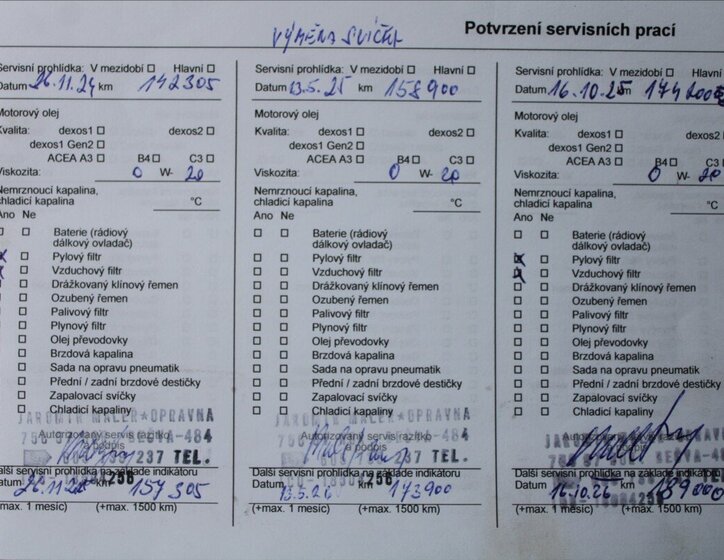 Potvrzení servisních prací
VÝMĚNA SVÍČEK
Servisní prohlídka: V mezidobí Hlavní
Datum 26.11.24 km 142305
Motorový olej
Kvalita: dexos1 dexos2
dexos1 Gen2
ACEA A3 B4 C3
Viskozita: 0 W- 20
Nemrznoucí kapalina,
chladicí kapalina °C
Ano Ne
Baterie (rádiový
dálkový ovladač)
Pylový filtr
Vzduchový filtr
Drážkovaný klínový řemen
Ozubený řemen
Palivový filtr
Plynový filtr
Olej převodovky
Brzdová kapalina
Sada na opravu pneumatik
Přední / zadní brzdové destičky
Zapalovací svíčky
Chladicí kapaliny
JAROMÍR MALER*OPRAVNA
Autorizovaný servis razítko
a podpis
237 TEL.
256
Další servisní prohlídka na základe indikátorů
Datum 26.11.25 km 157305
(+max. 1 měsíc) (+max. 1500 km)
Servisní prohlídka: V mezidobí Hlavní
Datum 13.5.25 km 158900
Motorový olej
Kvalita: dexos1 dexos2
dexos1 Gen2
ACEA A3 B4 C3
Viskozita: 0 W- 20
Nemrznoucí kapalina,
chladicí kapalina °C
Ano Ne
Baterie (rádiový
dálkový ovladač)
Pylový filtr
Vzduchový filtr
Drážkovaný klínový řemen
Ozubený řemen
Palivový filtr
Plynový filtr
Olej převodovky
Brzdová kapalina
Sada na opravu pneumatik
Přední / zadní brzdové destičky
Zapalovací svíčky
Chladicí kapaliny
JAROMÍR MALER*OPRAVNA
Autorizovaný servis razítko
a podpis
237 TEL.
256
Další servisní prohlídka na základe indikátorů
Datum 13.5.26 km 173900
(+max. 1 měsíc) (+max. 1500 km)
Servisní prohlídka: V mezidobí Hlavní
Datum 16.10.25 km 174000
Motorový olej
Kvalita: dexos1
dexos1 Gen2
ACEA A3 B4 C3
Viskozita: 0 W- 20
Nemrznoucí kapalina,
chladicí kapalina °C
Ano Ne
Baterie (rádiový
dálkový ovladač)
Pylový filtr
Vzduchový filtr
Drážkovaný klínový řemen
Ozubený řemen
Palivový filtr
Plynový filtr
Olej převodovky
Brzdová kapalina
Sada na opravu pneumatik
Přední / zadní brzdové destičky
Zapalovací svíčky
Chladicí kapaliny
Autorizovaný servis razítko
a podpis
Další servisní prohlídka na základe indikátorů
Datum 16.10.26 km 189000
(+max. 1 měsíc) (+max. 1500 km)